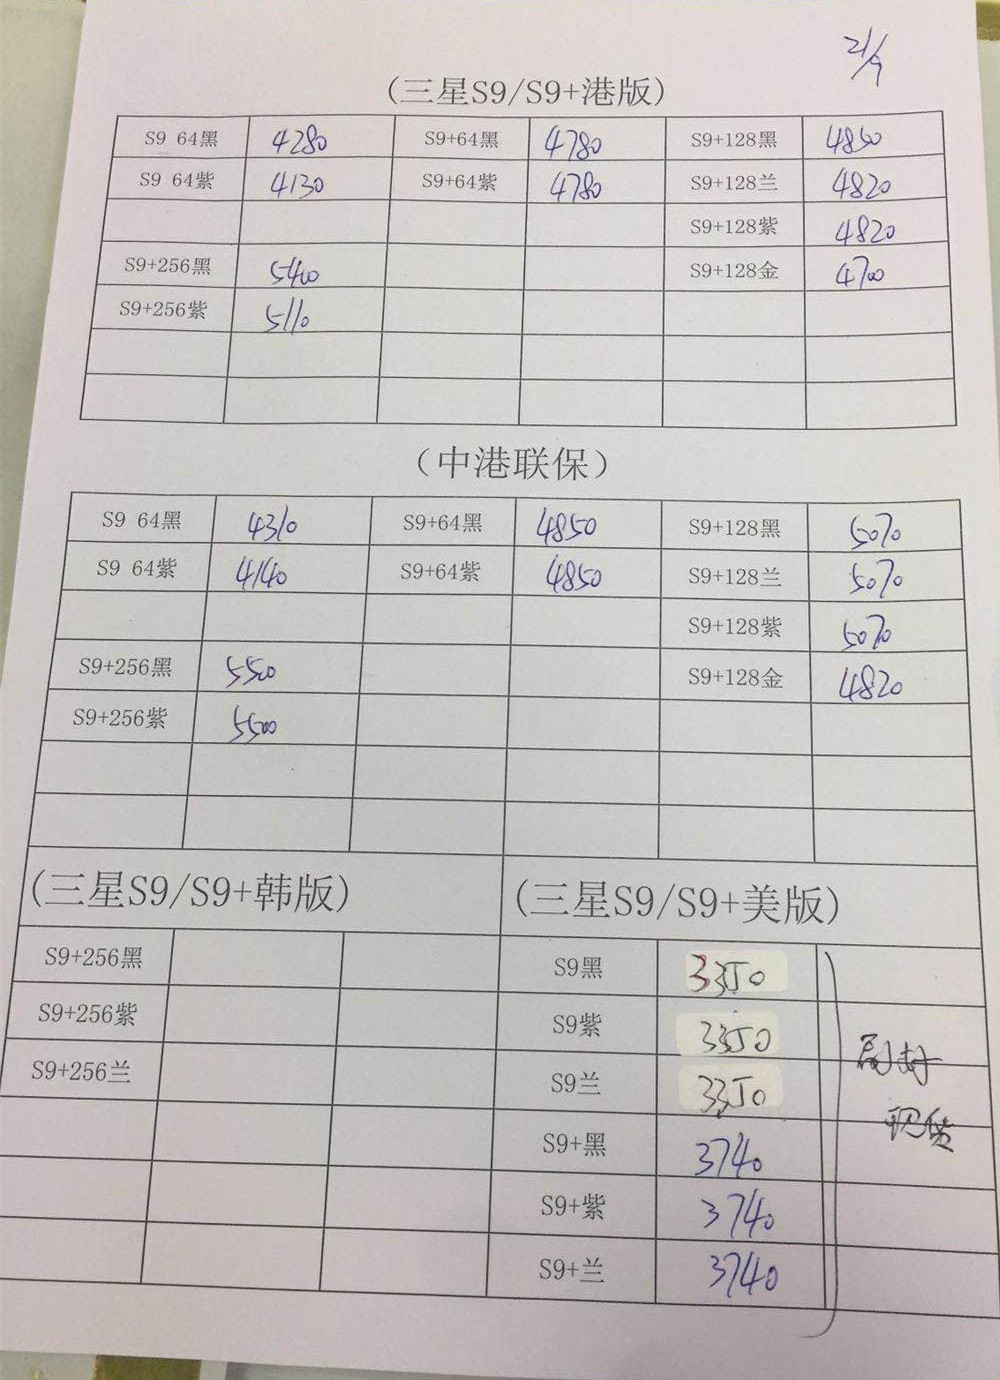 21/9
(三星S9/S9+港版)
S9 64黑 4280 S9+64黑 4780 S9+128黑 4850
S9 64紫 4130 S9+64紫 4780 S9+128兰 4820
S9+128紫 4820
S9+256黑 5400 S9+128金 4700
S9+256紫 5110
(中港联保)
S9 64黑 4310 S9+64黑 4850 S9+128黑 5070
S9 64紫 4140 S9+64紫 4850 S9+128兰 5070
S9+128紫 5070
S9+256黑 5500 S9+128金 4820
S9+256紫 5500
(三星S9/S9+韩版) (三星S9/S9+美版)
S9+256黑 S9黑 3350
S9+256紫 S9紫 3350
S9+256兰 S9兰 3350
刷好
现货
S9+黑 3740
S9+紫 3740
S9+兰 3740